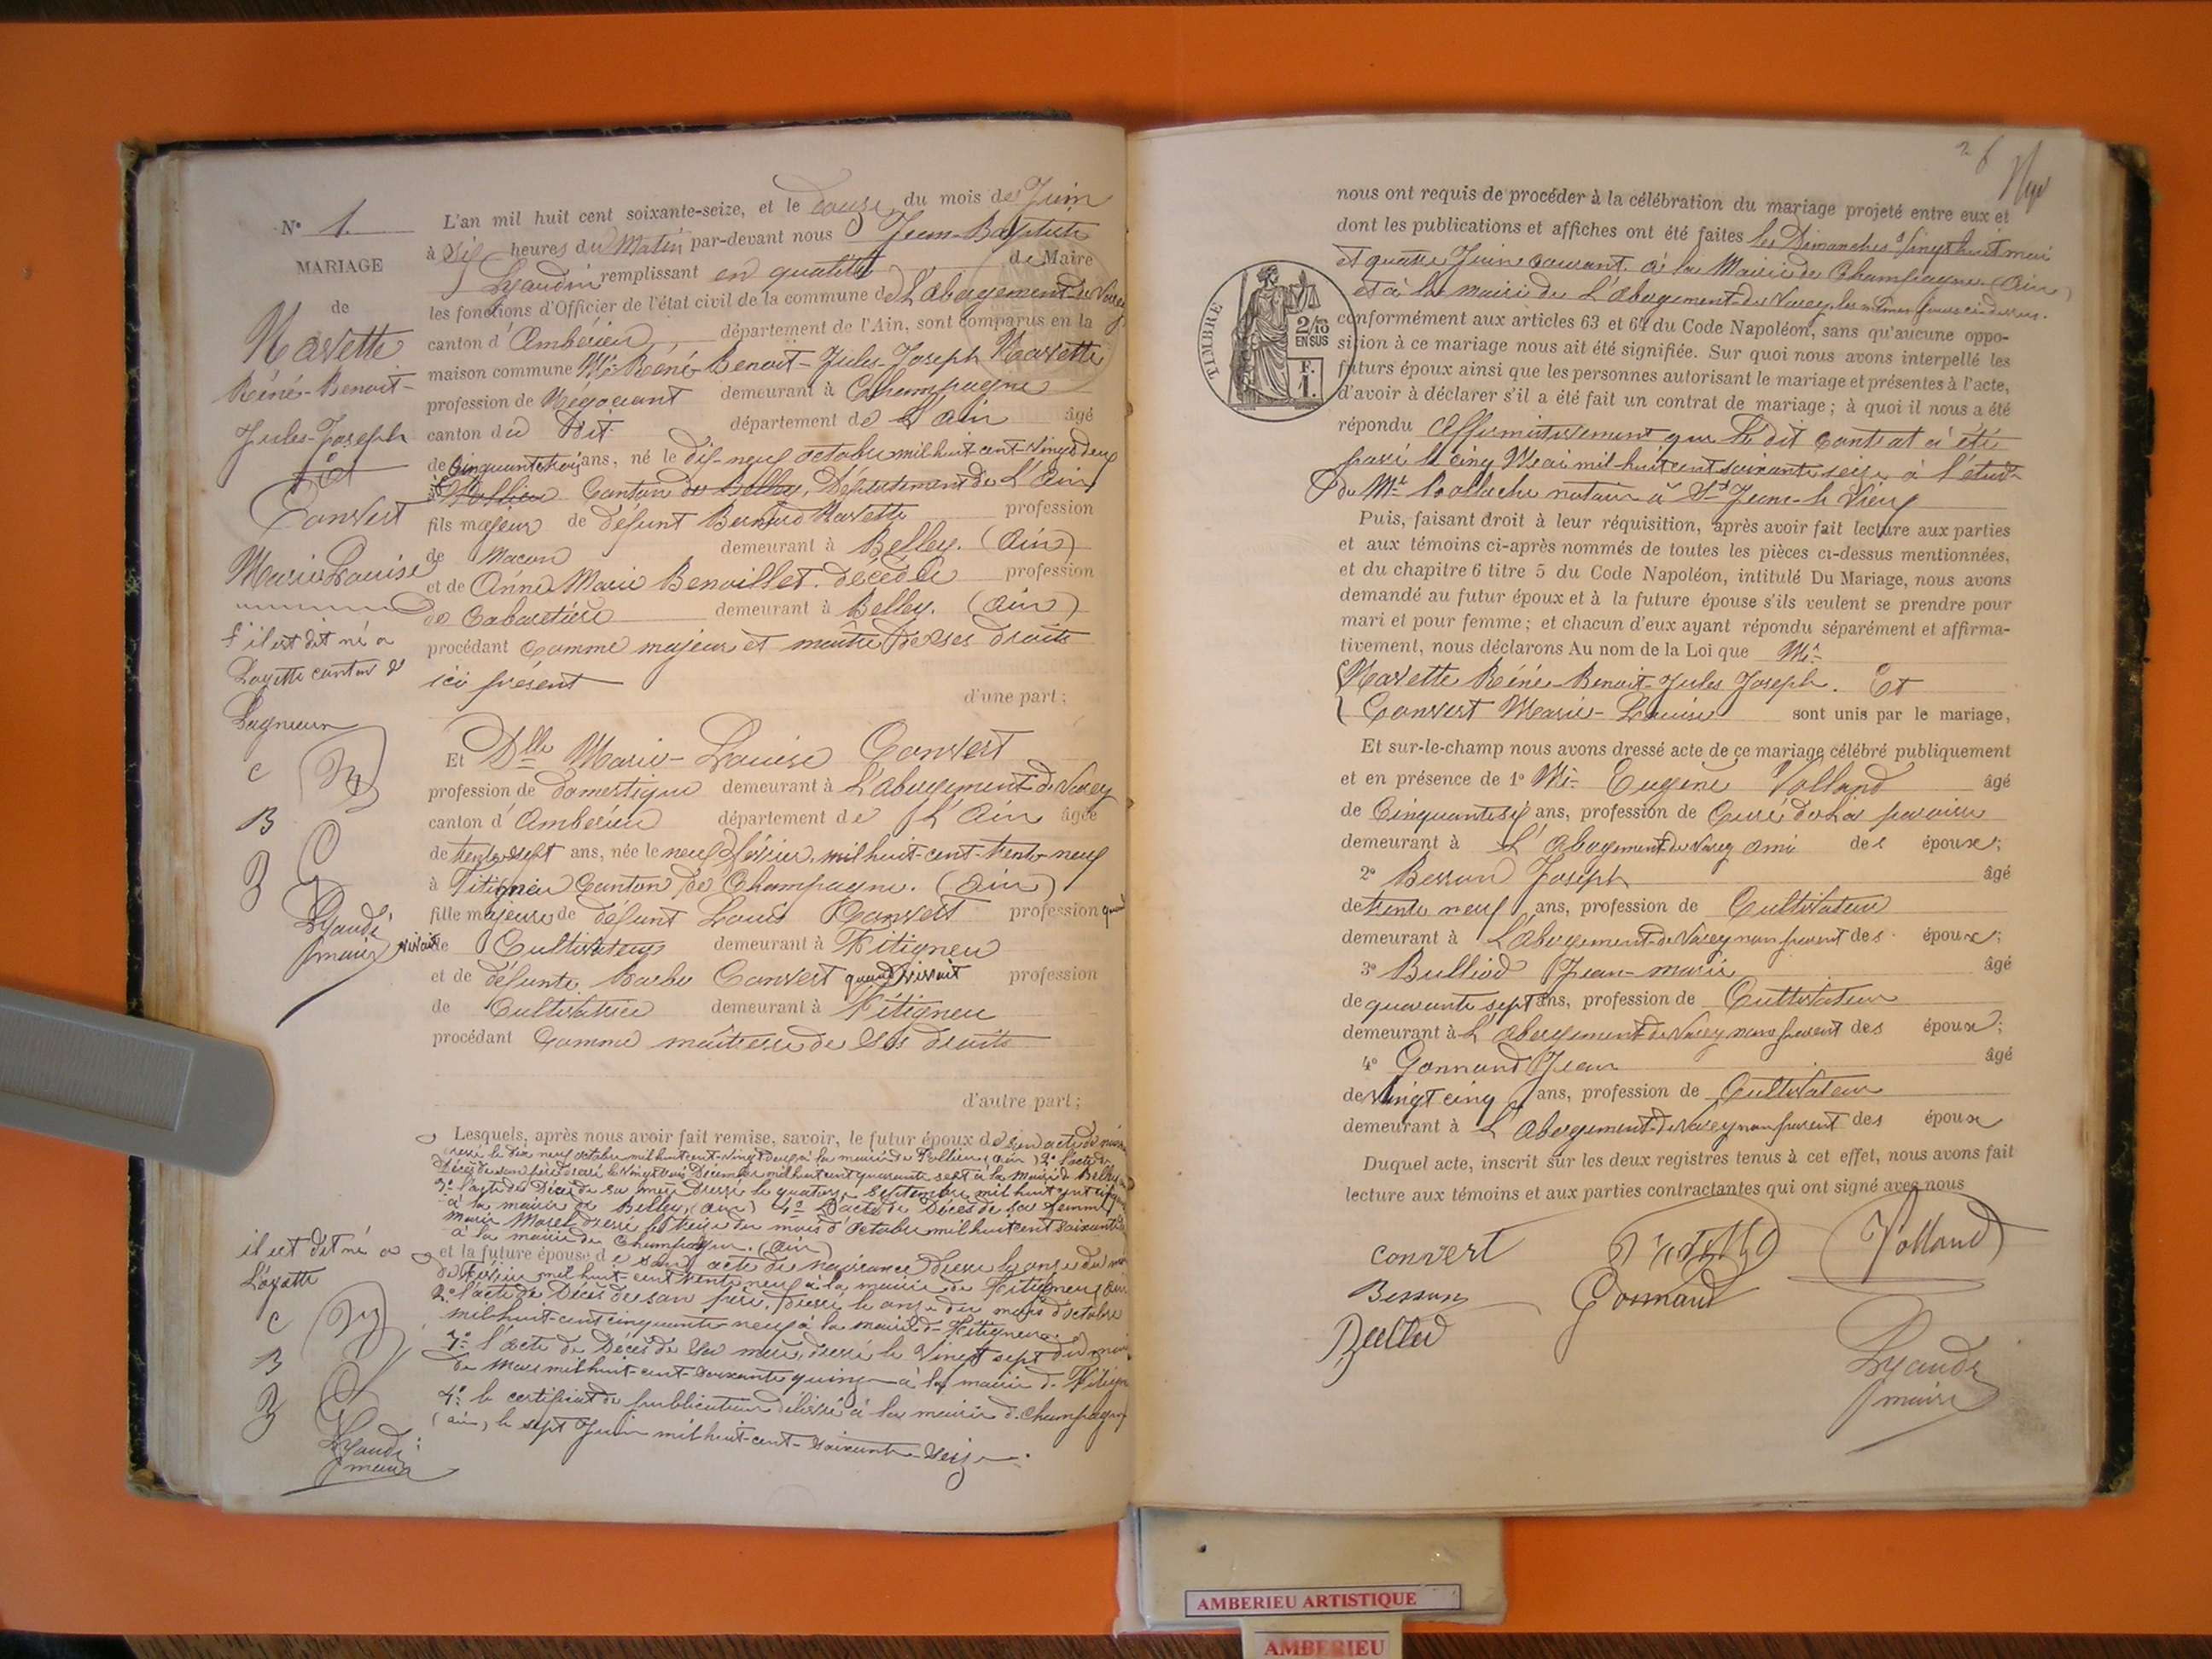 N° 1.
MARIAGE
de
Navette
Réné-Benoit-
Jules-Joseph
Et
Convert
Marie Louise
il est dit né a
Loyette canton d
Lagnieu
C
B
B
Lyaudi
maire
il est dit né a
Loyette
C
B
B
Lyaudi
maire
L'an mil huit cent soixante-seize, et le douze du mois de Juin
à dix heures du Matin par-devant nous Jean-Baptiste
Lyaudin remplissant en qualité de Maire
les fonctions d'Officier de l'état civil de la commune de L'abergement-de-Varey
canton d'Ambérieu, département de l'Ain, sont comparus en la
maison commune Mr. Réné-Benoit-Jules-Joseph Navette
profession de Négociant demeurant à Champagne
canton du dit département de L'ain âgé
de Cinquante trois ans, né le dix-neuf octobre mil huit-cent-vingt deux
Canton de Belley, Département de L'Ain
fils majeur de défunt Bernard Navette profession
de Macon demeurant à Belley. (Ain)
et de Anne Marie Benoillet décédée profession
de Cabaretière demeurant à Belley. (Ain)
procédant comme majeur et maître de ses droits
ici présent
d'une part;
Et Dlle Marie-Louise Convert
profession de domestique demeurant à L'abergement-de-Varey
canton d'Ambérieu département de L'Ain âgée
de trente-sept ans, née le neuf février, mil huit-cent-trente-neuf
à Fitignieu Canton de Champagne. (Ain)
fille majeure de défunt Louis Convert profession quand
vivait de Cultivateur demeurant à Fitigneu
et de défunte Barbe Convert quand vivait profession
de Cultivatrice demeurant à Fitigneu
procédant comme maîtresse de ses droits
d'autre part;
Lesquels, après nous avoir fait remise, savoir, le futur époux de son acte de
le dix neuf octobre mil huit cent-vingt deux à la mairie de (ain) 2° l'acte de
Décès de son père dressé le vingt trois Décembre mil huit cent quarante sept à la Mairie de Belley
3° l'acte de Décès de sa mère Dressé le quatorze Septembre mil huit cent
à la mairie de Belley, (Ain) 4° L'acte de Décès de sa femme
Marie Morel dressé le treize du mois d'octobre mil huit cent soixante
à la mairie de Champagne. (Ain)
et la future épouse de son acte de naissance Dressé le onze du
de Février mil huit-cent trente neuf à la mairie de Fitigneu
2° l'acte de Décès de son père, dressé le onze du mois d'octobre
mil huit-cent cinquante-neuf à la mairie de Fitigneu.
3° l'acte de Décès de sa mère, dressé le vingt sept du mois
de Mars mil huit-cent-soixante quinze à la mairie de
4° le certificat de publication délivré à la mairie de Champagne
(ain), le sept Juin mil huit-cent-soixante-seize.
26
nous ont requis de procéder à la célébration du mariage projeté entre eux et
dont les publications et affiches ont été faites les Dimanches Vingt huit mai
et quatre Juin courant. à la Mairie de Champagne. (Ain)
et à la mairie de L'abergement-de-Varey, les mêmes jours ci-dessus.
conformément aux articles 63 et 64 du Code Napoléon, sans qu'aucune oppo-
sition à ce mariage nous ait été signifiée. Sur quoi nous avons interpellé les
futurs époux ainsi que les personnes autorisant le mariage et présentes à l'acte,
d'avoir à déclarer s'il a été fait un contrat de mariage; à quoi il nous a été
répondu affirmativement que le dit contrat a été
passé le cinq Mai mil huit cent soixante seize à l'étude
de Mr. notaire à St Jean-le Vieux
TIMBRE
2/10
EN SUS
F.
1.
Puis, faisant droit à leur réquisition, après avoir fait lecture aux parties
et aux témoins ci-après nommés de toutes les pièces ci-dessus mentionnées,
et du chapitre 6 titre 5 du Code Napoléon, intitulé Du Mariage, nous avons
demandé au futur époux et à la future épouse s'ils veulent se prendre pour
mari et pour femme; et chacun d'eux ayant répondu séparément et affirma-
tivement, nous déclarons Au nom de la Loi que Mr.
Navette Réné-Benoit-Jules Joseph. Et
Convert Marie-Louise sont unis par le mariage,
Et sur-le-champ nous avons dressé acte de ce mariage célébré publiquement
et en présence de 1° Mr. Eugène Volland âgé
de Cinquante six ans, profession de Curé de La paroisse
demeurant à L'Abergement-de-Varey ami des époux;
2° Besson Joseph âgé
de trente neuf ans, profession de Cultivateur
demeurant à L'Abergement-de-Varey non parent des époux;
3° Bulliod Jean-marie âgé
de quarante sept ans, profession de Cultivateur
demeurant à L'Abergement-de-Varey non parent des époux;
4° Gonnand Jean âgé
de vingt cinq ans, profession de Cultivateur
demeurant à L'Abergement-de-Varey non parent des époux
Duquel acte, inscrit sur les deux registres tenus à cet effet, nous avons fait
lecture aux témoins et aux parties contractantes qui ont signé avec nous
convert
Volland
Besson
Gonnand
Lyaudi
maire
AMBERIEU ARTISTIQUE
AMBERIEU